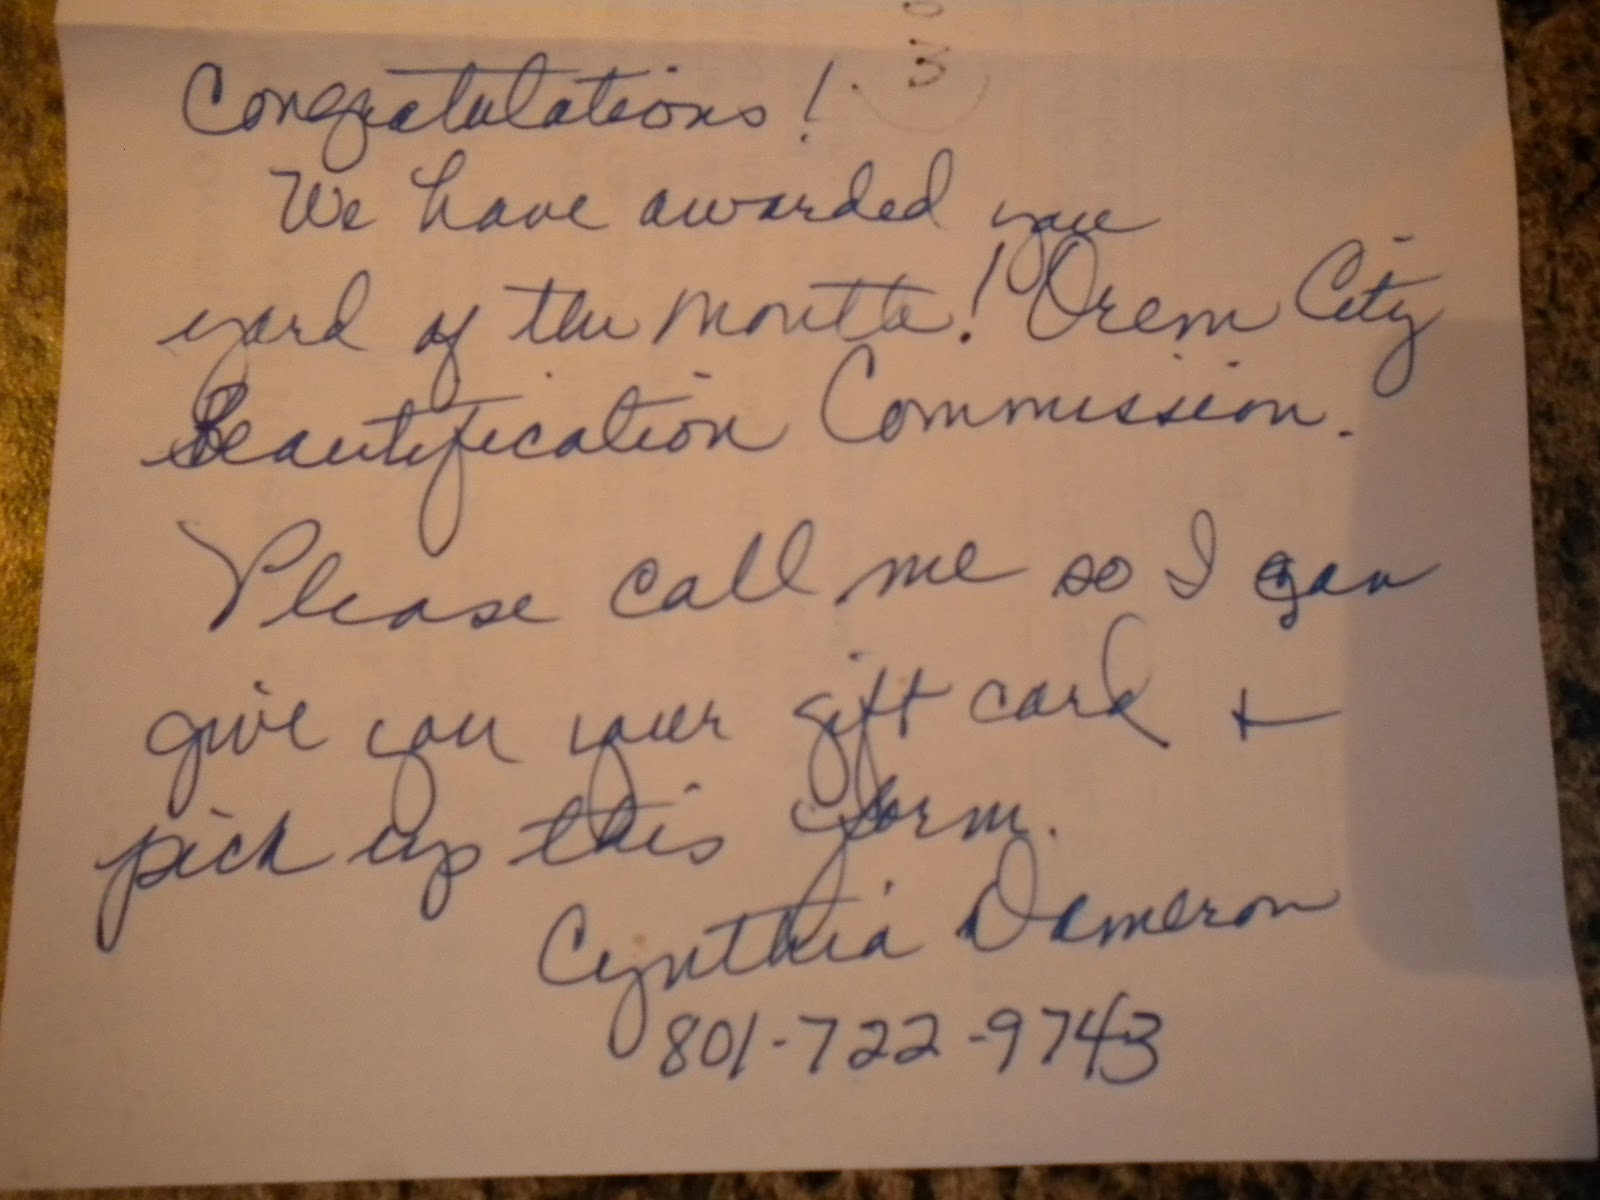 Congratulations!
We have awarded you
yard of the Month! Orem City
Beautification Commission.
Please call me so I can
give you your gift card +
pick up this form.
Cynthia Dameron
801-722-9743